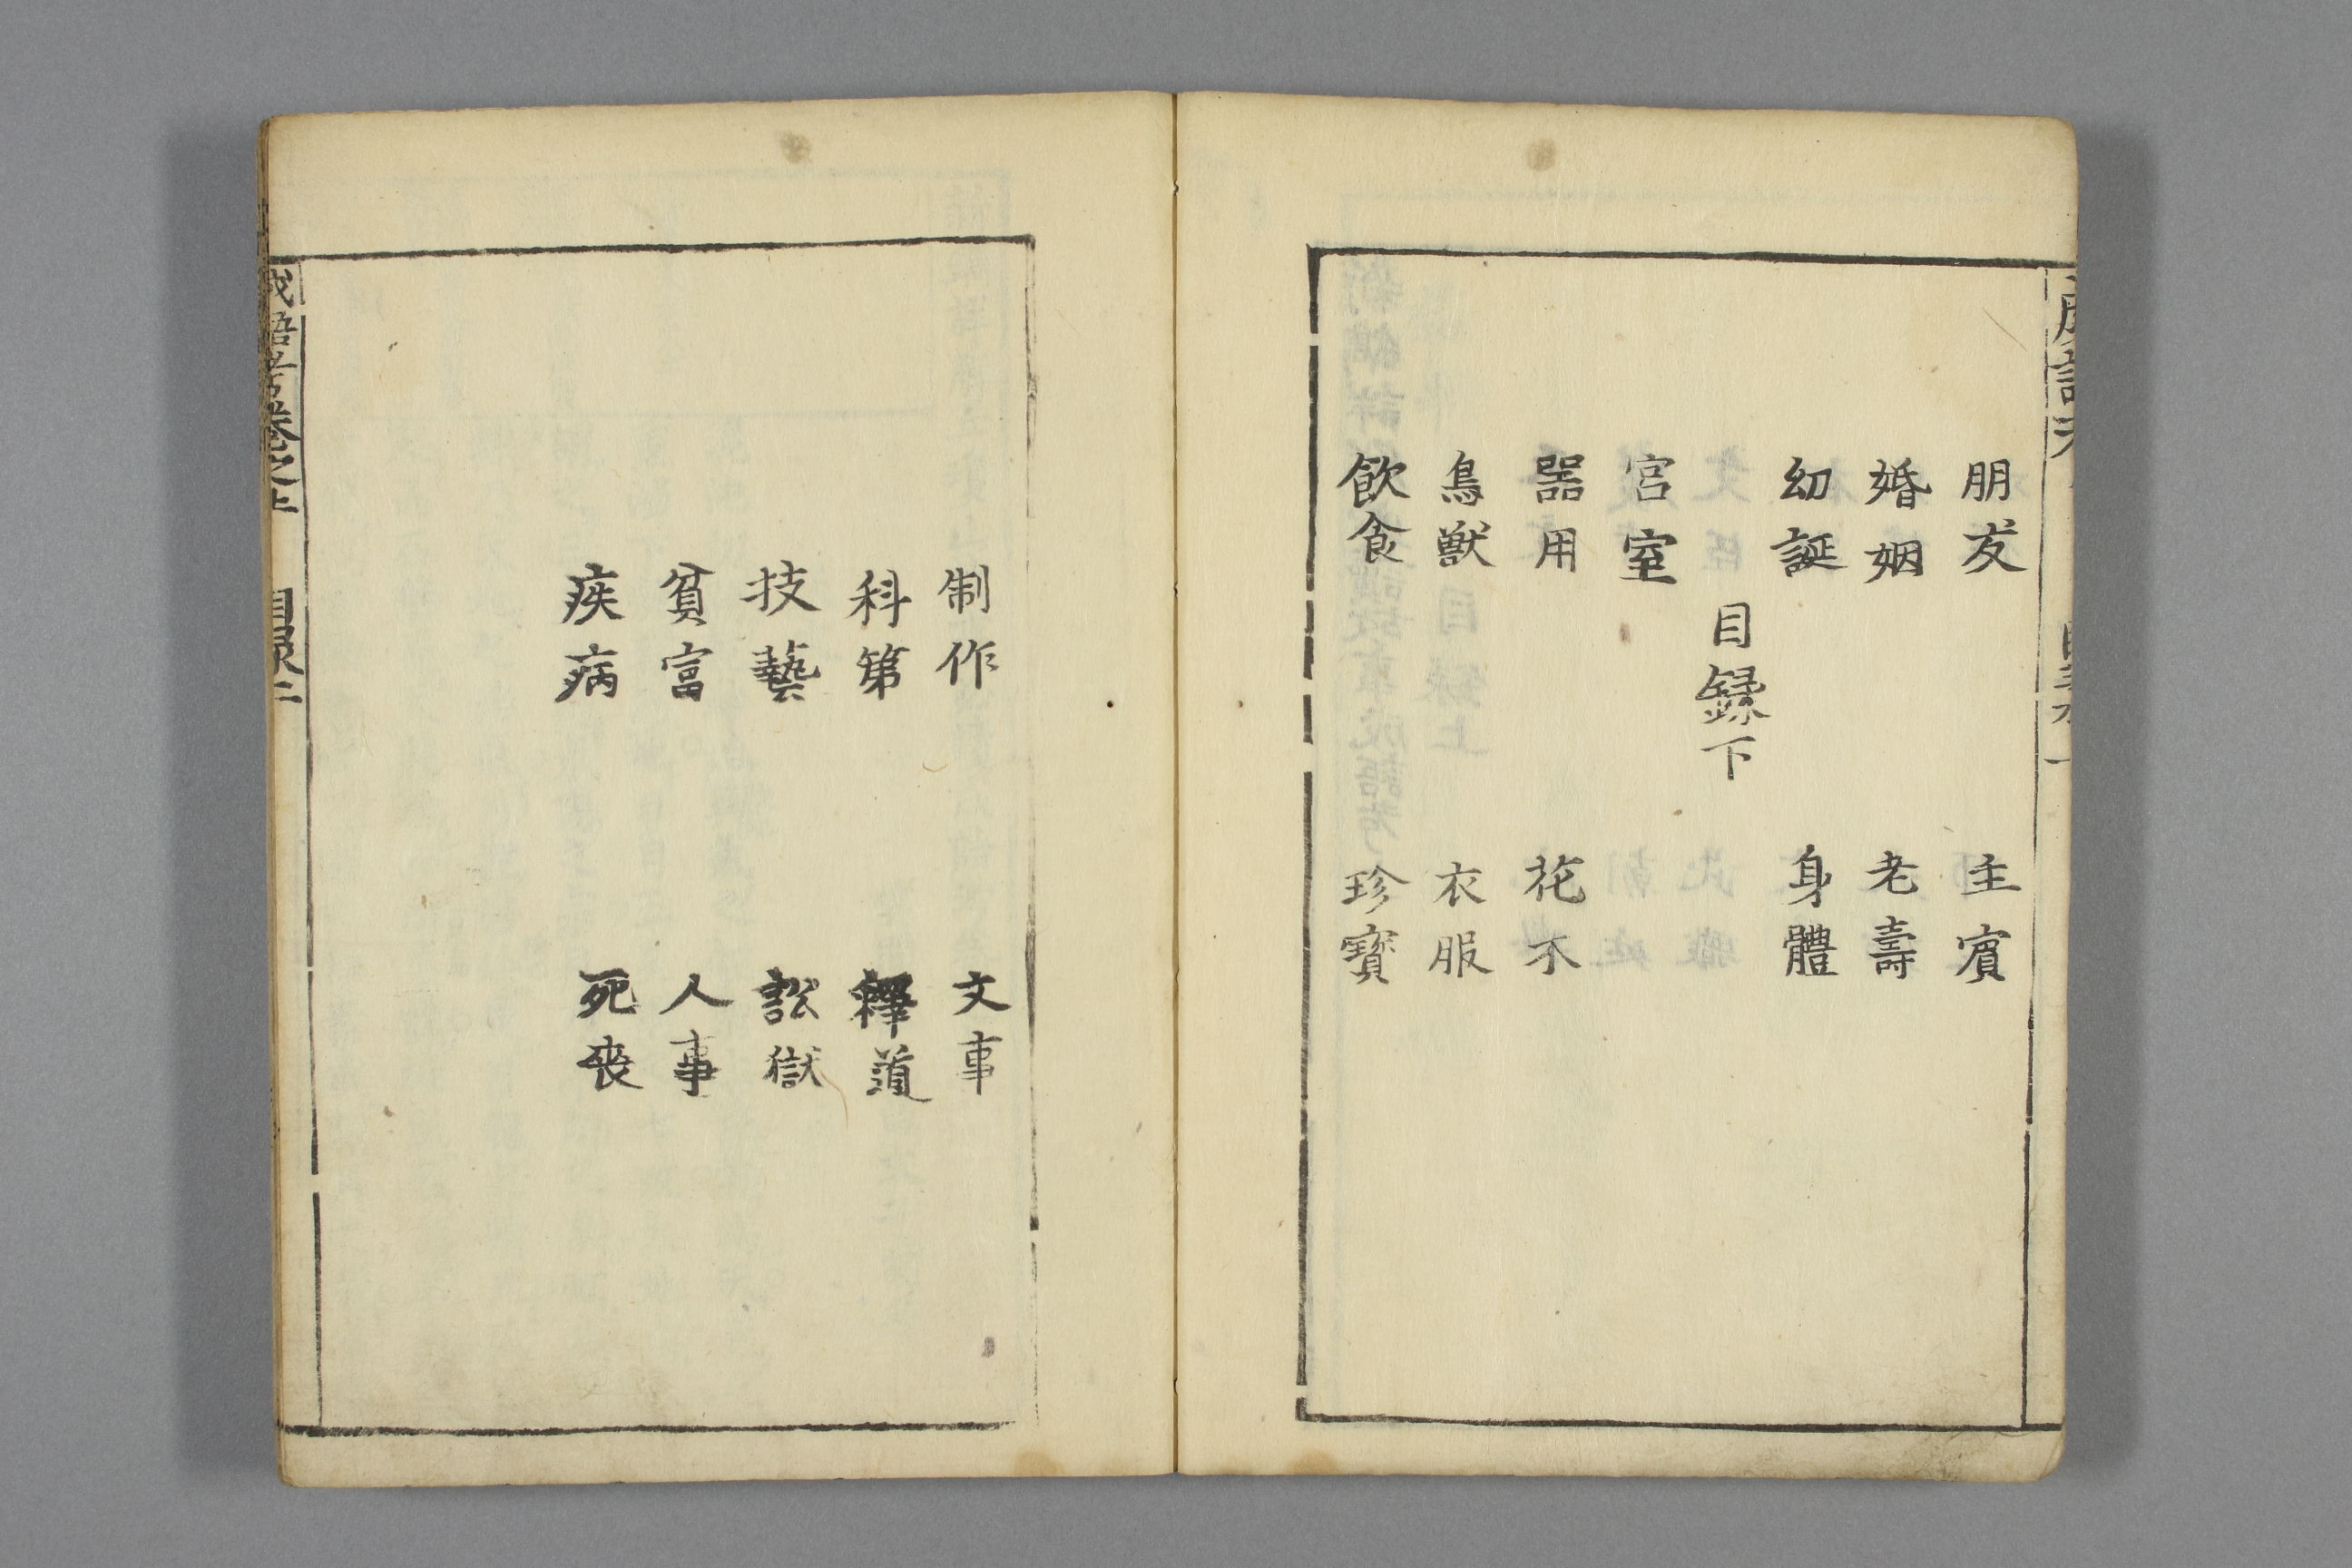 朋友　主賓
婚姻　老壽
幼誕　身體
目録下
宮室
器用　花木
鳥獣　衣服
飲食　珍寳
制作　文事
科第　釋道
技藝　訟獄
貧富　人事
疾病　死喪
成語考卷之上　目録二